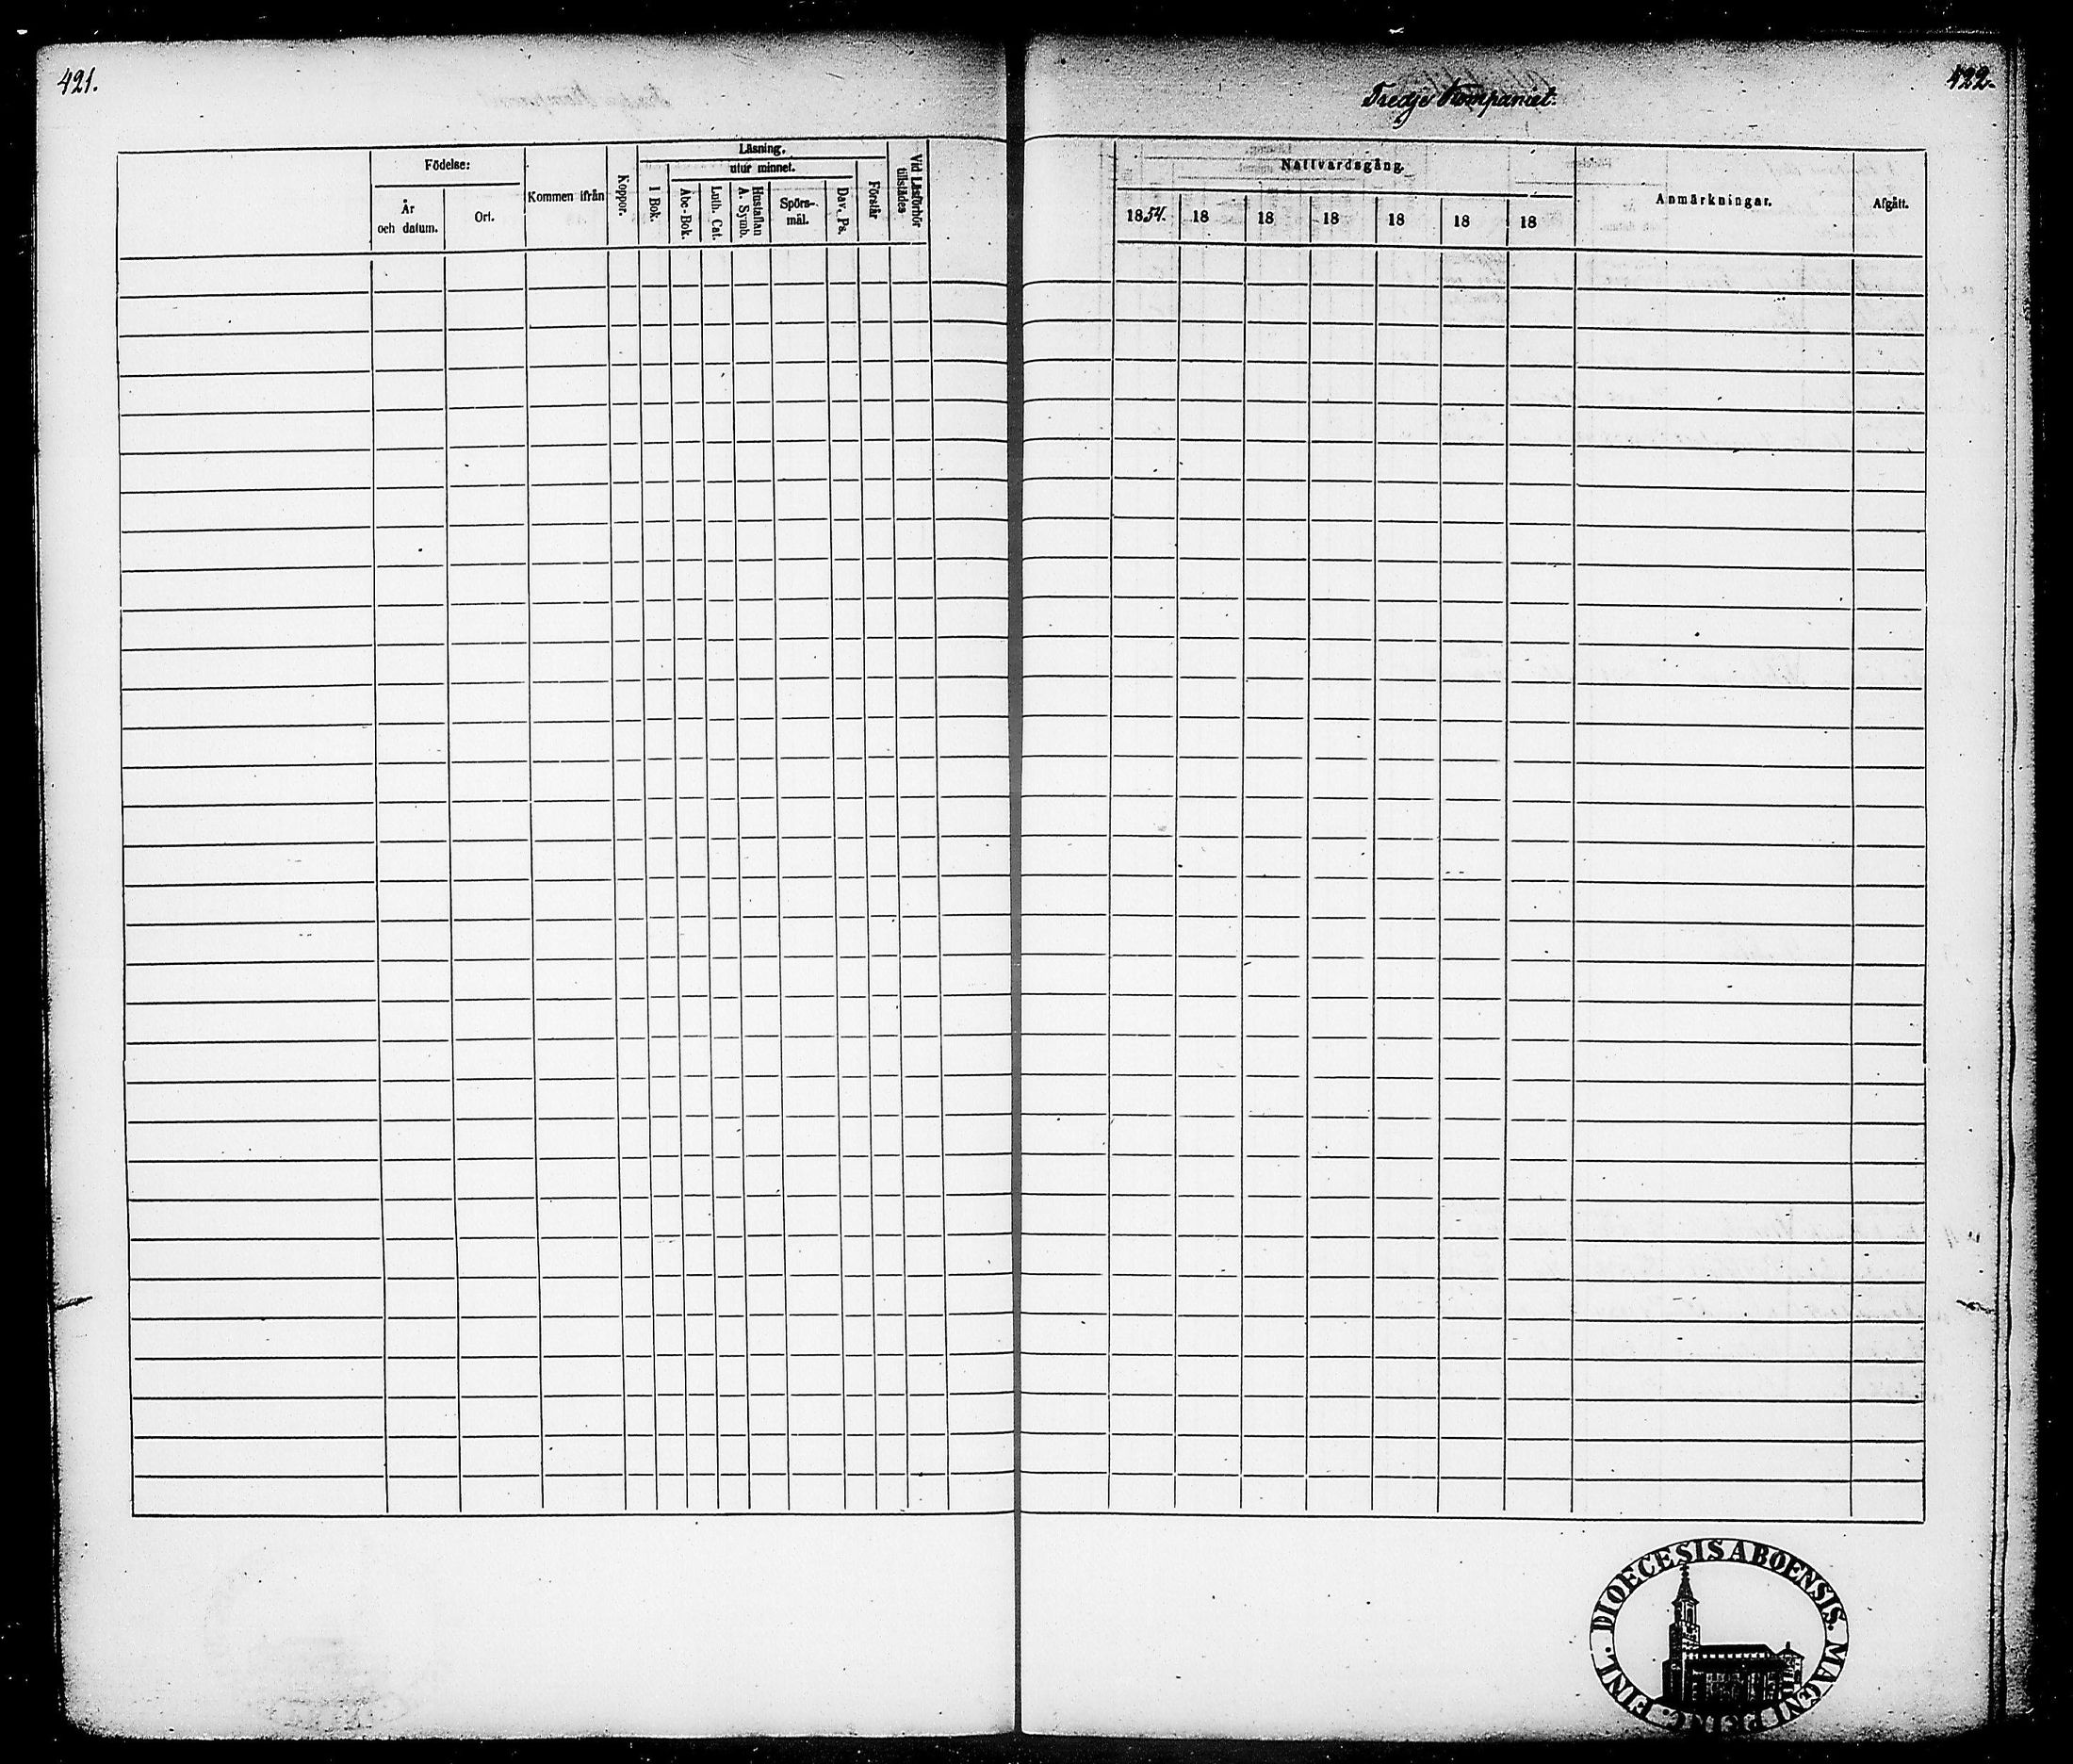 421.
Födelse:
År
och datum.
Ort.
Kommen ifrån
Koppor.
Läsning.
utur minnet.
I Bok.
Abc-Bok.
Luth. Cat.
Hustaflan
A. Symb.
Spörs-
mål.
Dav. Ps.
Förstår
Vid Läsförhör
tillstädes
422.
Tredje Kompaniet.
Nattvardsgång.
1854. 18 18 18 18 18 18
Anmärkningar.
Afgått.
FINL. DIOECESIS ABOENSIS. MAGNI PRINC.